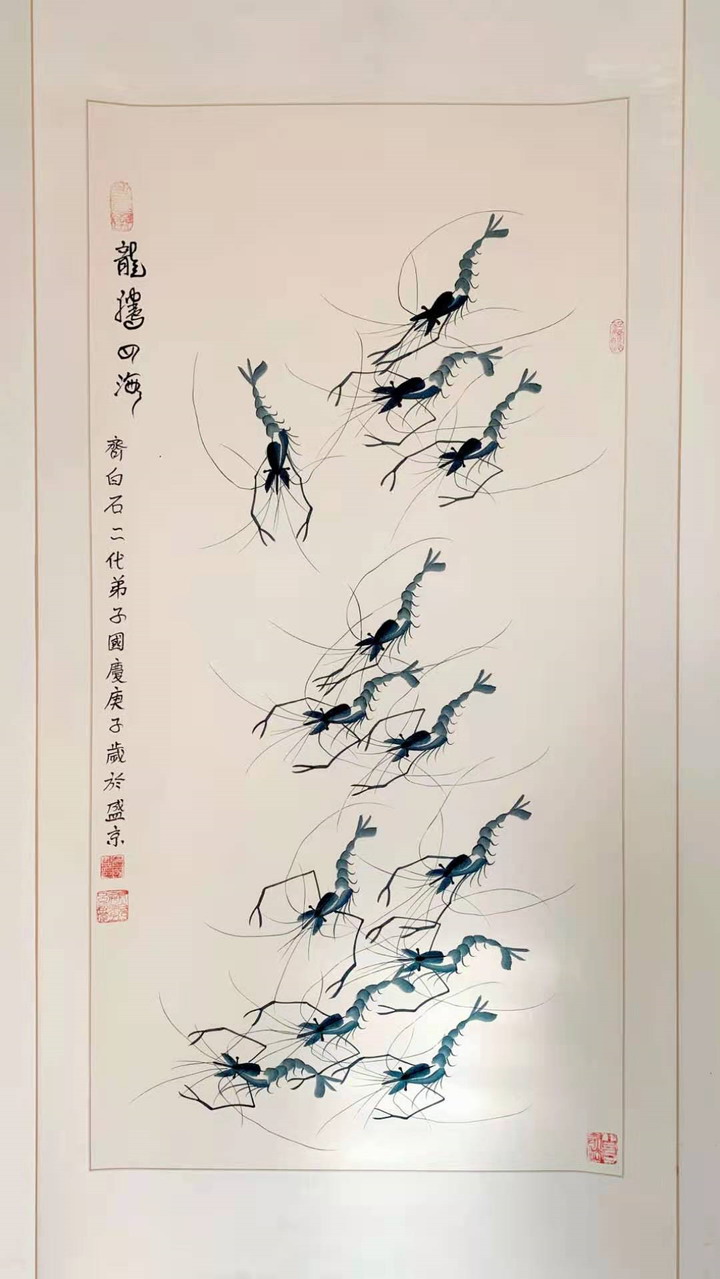 龍騰四海
齊白石二代弟子國慶庚子歲於盛京